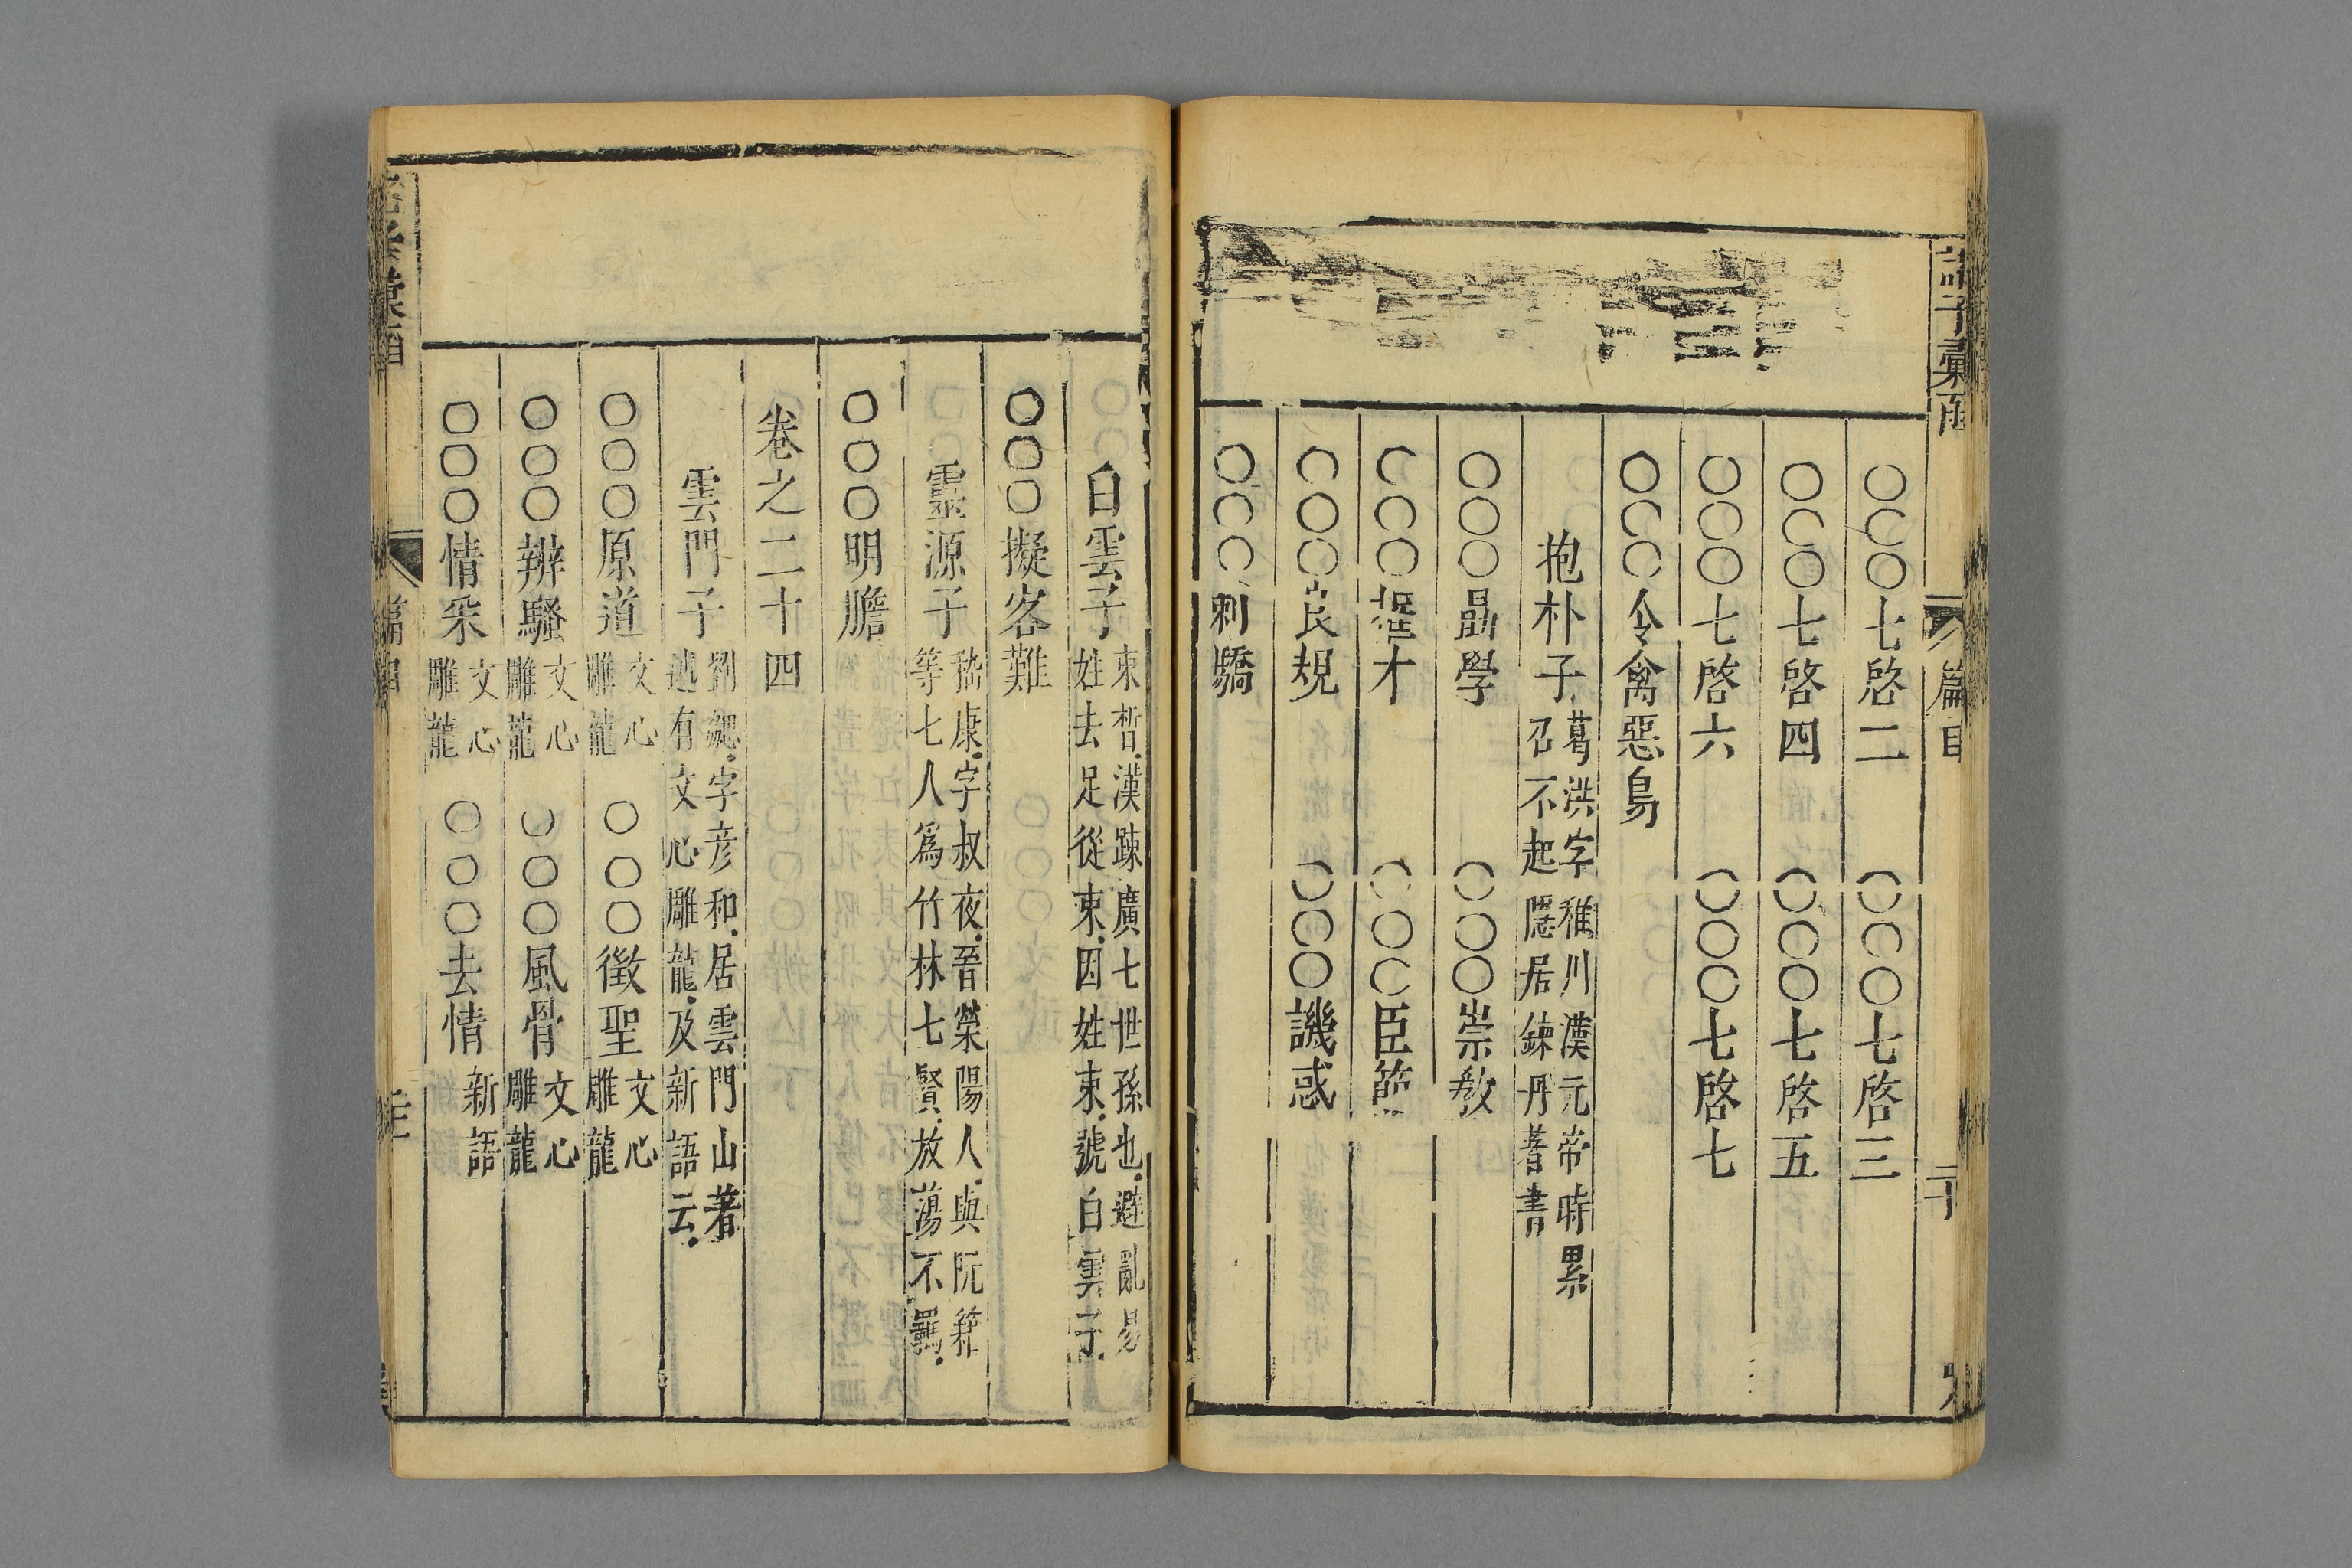 諸子彙函 篇目 二十
〇〇〇七啓二 〇〇〇七啓三
〇〇〇七啓四 〇〇〇七啓五
〇〇〇七啓六 〇〇〇七啓七
〇〇〇令禽惡鳥
抱朴子 葛洪字稚川漢元帝時累
召不起隱居鍊丹著書
〇〇〇勗學 〇〇〇崇敎
〇〇〇擢才 〇〇〇臣節
〇〇〇良規 〇〇〇譏惑
〇〇〇刺驕
白雲子 束晳.漢踈廣七世孫也.避亂易
姓去足從束.因姓束.號白雲子.
〇〇〇擬客難
靈源子 嵇康.字叔夜.晉滎陽人.與阮籍
等七人爲竹林七賢.放蕩不羈.
〇〇〇明膽
卷之二十四
雲門子 劉勰.字彦和.居雲門山著
述有文心雕龍.及新語云.
〇〇〇原道 文心雕龍 〇〇〇徵聖 文心雕龍
〇〇〇辨騷 文心雕龍 〇〇〇風骨 文心雕龍
〇〇〇情采 文心雕龍 〇〇〇去情 新語
篇目